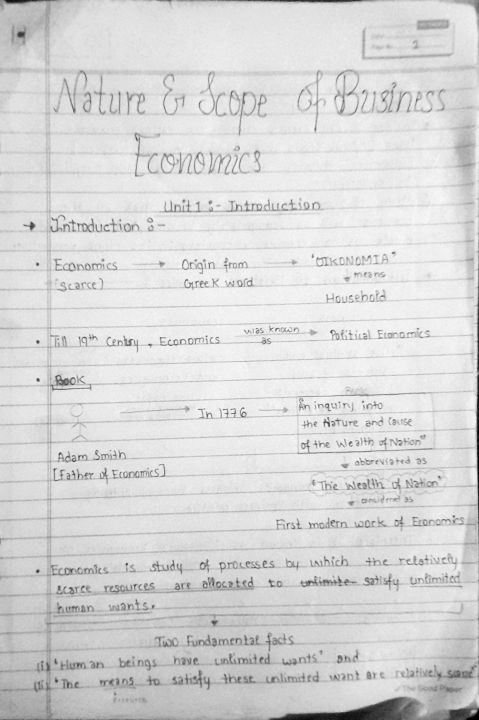 1
Nature & Scope of Business
Economics
Unit 1 :- Introduction
→ Introduction :-
• Economics → Origin from → "OIKONOMIA"
(scarce) Greek word ↓ means
Household
• Till 19th Century, Economics was known as → Political Economics
• Book
→ In 1776 → An inquiry into
the Nature and Cause
of the Wealth of Nation"
Adam Smith
[Father of Economics]
↓ abbreviated as
"The Wealth of Nation"
↓ considered as
First modern work of Economics
• Economics is study of processes by which the relatively
scarce resources are allocated to unlimite satisfy unlimited
human wants.
↓
Two Fundamental facts
(i) "Human beings have unlimited wants" and
(ii) "The means to satisfy these unlimited want are relatively scarce"
The Good Paper